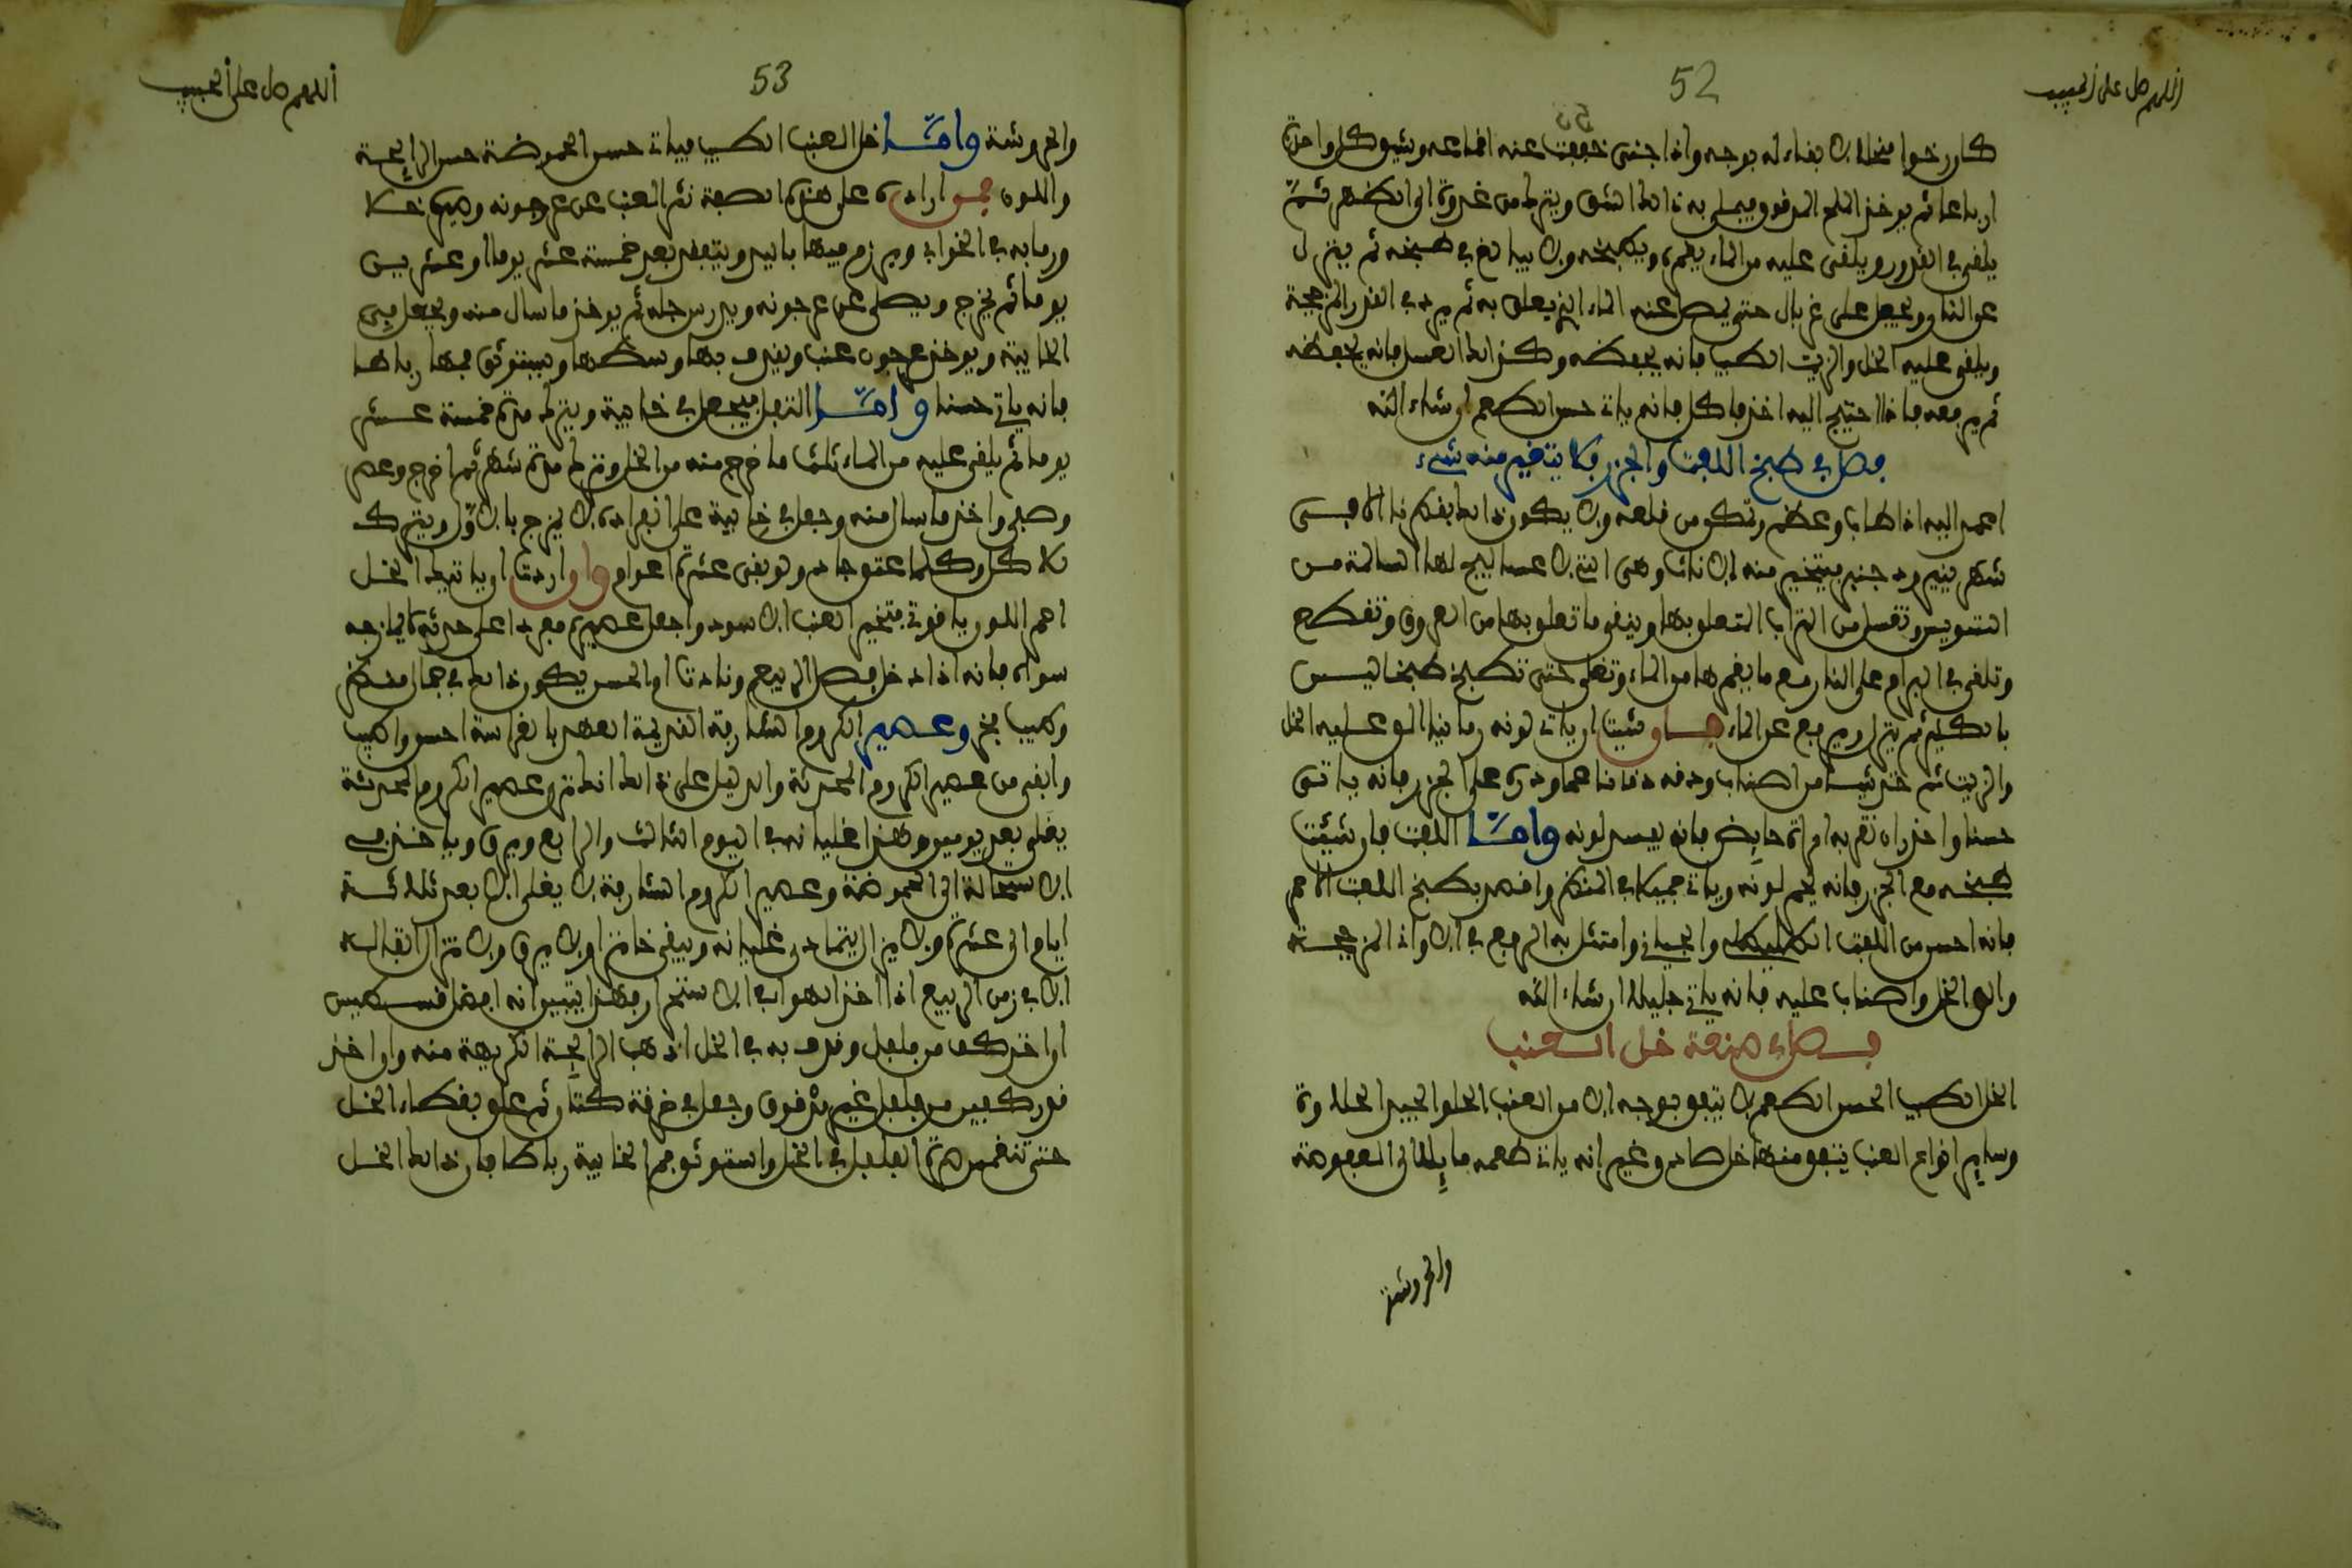 اللهم صل على الحبيب
52
كان رخوا منحلا لا بقاء له بوجه واذا جني خففت عنه اقماعه وشق كل واحدة
ارباعا ثم يوخذ الملح المدقوق فيملى به ذلك الشق ويترك من غدوة الى الظهر ثم
يلقى في القدور ويلقى عليه من الماء يغمره ويطبخه ولا يبالغ في طبخه ثم ينزل
عن النار ويجعل على غربال حتى يصل عنه الماء الذي يعلق به ثم يرد في القدر المزججة
ويلقى عليه الخل والزيت الطيب فانه يحفظه وكذلك العسل فانه يحفظه
ثم يرفعه فاذا احتيج اليه اخذ فاكل فانه يات حسن الطعم ان شاء الله
فصل في طبخ اللفت والجزر فلا يتغير منه شيء
اعمد اليه اذا طاب وعظم وتكون من قلعه ولا يكون ذلك بفكرنا الا في
شهر ينير ودجنبر فيتخير منه الاناث وهي التي لا عساليج لها السالمة من
التسويس وتغسل من التراب المتعلق بها وينقى ما تعلق بها من العروق وتقطع
وتلقى في البرام على النار مع ما يغمرها من الماء وتغلى حتى تطبخ طبخا ليس
بالكثير ثم ينزل ويرفع عن الماء فان شئت ان يات لونه رمانيا القي عليه الخل
والزيت ثم خذ شيئا من الصناب ودقه دقا ناعما وذره على الجزر فانه ياتي
حسنا واحذر ان تقربه امراة حايض فانه يفسد لونه واما اللفت فان شئت
طبخه مع الجزر فانه يحمر لونه ويات جميلا في المنظر واقصد بطبخ اللفت الاحمر
فانه احسن من اللفت الطليطلي والجياني وامتثل به الرفع في الاواني المزججة
والق الخل والصناب عليه فانه ياتي جليلا ان شاء الله
فصل في صنعة خل العنب
الخل الطيب الحسن الطعم لا يتفق بوجه الا من العنب الحلو الجيد الحلاوة
وساير انواع العنب يتفق منها خل صاد وغير انه يات طعمه مايلا الى العفوصة
والحروشة
اللهم صل على الحبيب
53
والحروشة واما خل العنب الطيب فيات حسن الحموضة حسن الرايحة
واللون فمن اراده على هذه الصفة نثر العنب عن عرجونه وصير خلا
ورما به في الخوابي ويرزم فيها باليد ويتفقد بعد خمسة عشر يوما او عشرين
يوما ثم يخرج ويصفى عن عرجونه ويدرس جله ثم يوخذ ما سال منه ويجعل في
الخابية ويوخذ عرجون عنب ويغرف بها وسطها ويستوثق فمها رباطا
فانه ياتي حسنا واما التفل فيجعل في خابية ويترك مدة خمسة عشر
يوما ثم يلقى عليه من الماء ثلث ما خرج منه من الخل ويترك مدة شهر ثم اخرج وعصر
وصفي واخذ ما سال منه وجعل في خابية على انفراده لا يمزج بالاول ويترك
للاكل وكلما عتق جاد ولو بقي عشرة اعوام وان اردت ان ياتيك الخل
احمر اللون ياقوتي فتخير العنب الاسود واجعل عصيره مفردا على حدته لا يمازجه
سواه فانه اذا دخل فصل الربيع ونادت اوالحسن يكون ذلك في جمال منظر
وطيب فخر وعصير الكروم الشارفة القديمة العهد بالغراسة احسن واطيب
وابقى من عصير الكروم المحدثة والدليل على ذلك انك ترى عصير الكروم المحدثة
يغلى بعد يومين وهذا غليانه في اليوم الثالث والرابع ويرق وياخذ في
الاستحالة الى الحموضة وعصير الكروم الشارفة لا يغلى الا بعد ثلاثة
ايام الى عشرة ولا يزال يتمادى غليانه ويبقى خاثرا ولا يرق ولا تزال نقاله
الا في زمن الربيع اذا اخذ الهواء في الاستحرار فهذا يتبين انه افضل قسمين
اواخذ كف من فلفل وقرف به في الخل اذهب الرايحة الكريهة منه وان اخذ
قدر كبير من فلفل غير مدقوق وجعل في خرقة كتان ثم علق بغطاء الخل
حتى تنغمس صرة الفلفل في الخل واستوثق فم الخابية رباطا فان ذلك الخل